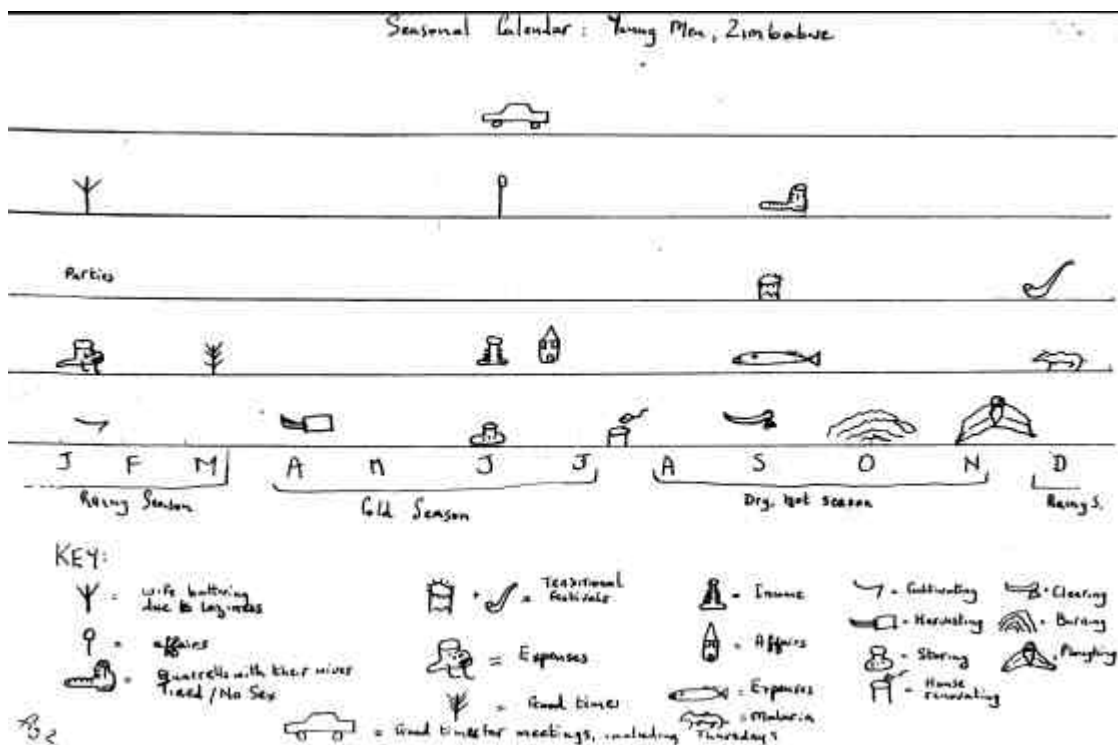 Seasonal Calendar: Young Men, Zimbabwe
Parties
J F M A M J J A S O N D
Rainy Season Cold Season Dry, hot season Rainy S.
KEY:
= wife battering due to laziness
= affairs
= Quarrells with their wives Tired / No Sex
+ = Traditional festivals
= Expenses
= Good times
= Good times for meetings, including Thursdays
= Income
= Affairs
= Expenses
= Malaria
= Cultivating
= Harvesting
= Storing
= House renovating
= Clearing
= Burning
= Ploughing